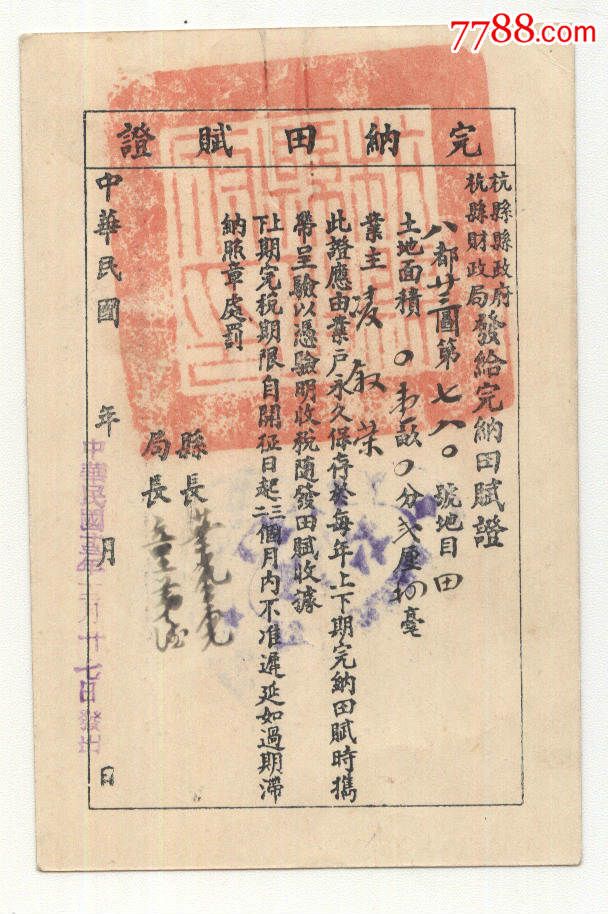 7788.com
完納田賦證
杭縣縣政府
杭縣財政局
發給完納田賦證
八都廿三圖第七八〇號地目田
土地面積〇畝〇分弍厘
毫
業主凌叙榮
此證應由業戶永久保存於每年上下期完納田賦時攜
帶呈驗以憑驗明收稅隨發田賦收據
上
下
期完稅期限自開征日起
三
二
個月內不准遲延如過期滯
納照章處罰
縣長
局長
中華民國 年 月 日
中華民國
十七日發出